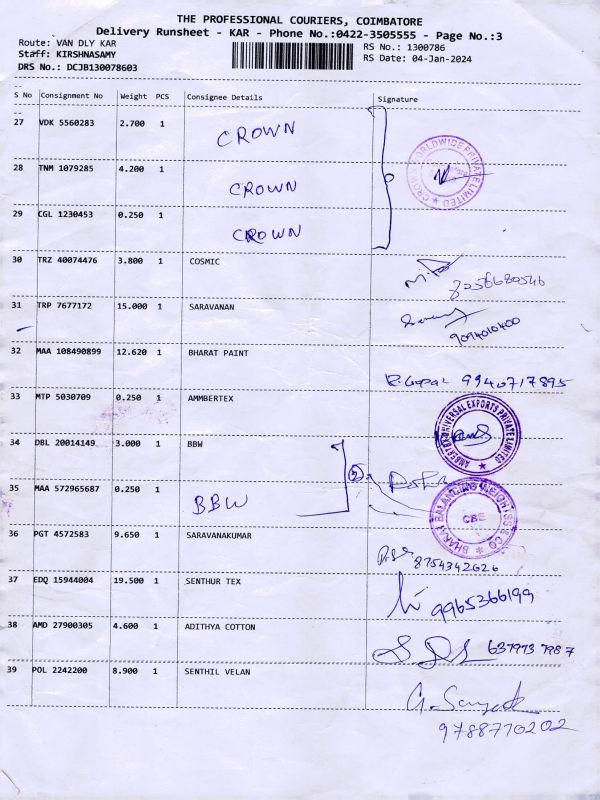 THE PROFESSIONAL COURIERS, COIMBATORE
Delivery Runsheet - KAR - Phone No.:0422-3505555 - Page No.:3
Route: VAN DLY KAR
Staff: KIRSHNASAMY
DRS No.: DCJB130078603
RS No.: 1300786
RS Date: 04-Jan-2024
S No Consignment No Weight PCS Consignee Details Signature
27 VDK 5560283 2.700 1 CROWN
28 TNM 1079285 4.200 1 CROWN
CROWN WORLDWIDE PRIVATE LIMITED
29 CGL 1230453 0.250 1 CROWN
30 TRZ 40074476 3.800 1 COSMIC
31 TRP 7677172 15.000 1 SARAVANAN
9094010400
32 MAA 108490899 12.620 1 BHARAT PAINT
R.Gopal 9940717895
33 MTP 5030709 0.250 1 AMMBERTEX
UNIVERSAL EXPORTS PRIVATE LIMITED
34 DBL 20014149 3.000 1 BBW
35 MAA 572965687 0.250 1 BBW
BHARAT BALANCING WEIGHTSS & CO
CBE
36 PGT 4572583 9.650 1 SARAVANAKUMAR
8754342626
37 EDQ 15944004 19.500 1 SENTHUR TEX
9965366199
38 AMD 27900305 4.600 1 ADITHYA COTTON
39 POL 2242200 8.900 1 SENTHIL VELAN
9788770202